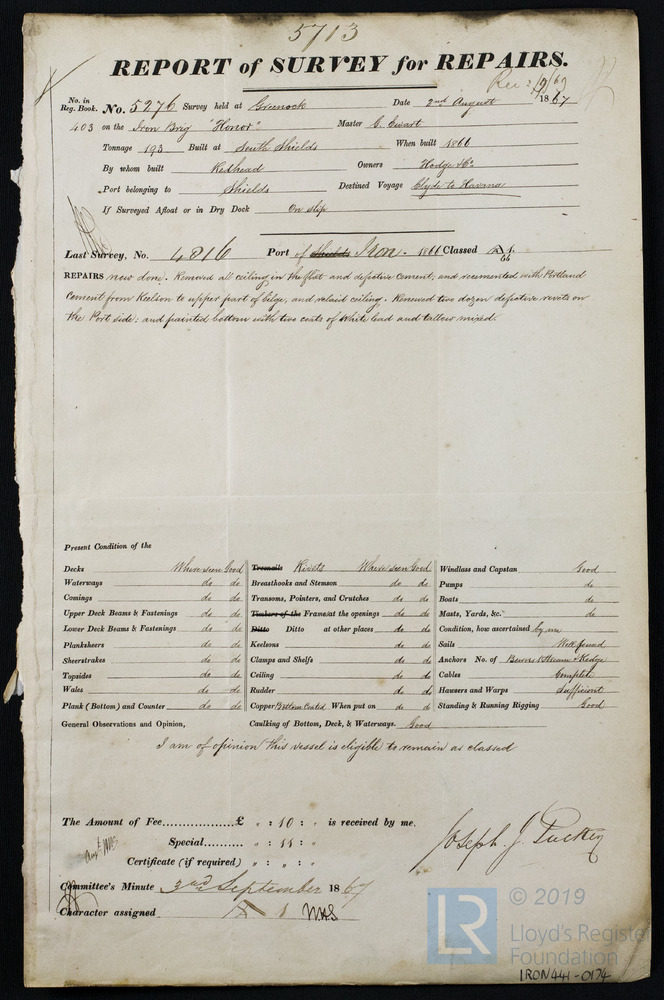 5713
REPORT of SURVEY for REPAIRS.
No. in Reg. Book. No. 5276 Survey held at Greenock Date 2nd August 1867
403 on the Iron Brig "Honor" Master C. Ewart
Tonnage 193 Built at South Shields When built 1866
By whom built Redhead Owners Hodge & Co
Port belonging to Shields Destined Voyage Clyde to Havana
If Surveyed Afloat or in Dry Dock On slip
Last Survey, No. 4816 Port of Shields Iron. 1866 Classed A 1.
REPAIRS now done. Removed all ceiling in the flat and defective cement, and recemented with Portland
Cement from Keelson to upper part of bilge, and relaid ceiling. Renewed two dozen defective rivets on
the Port side: and painted bottom with two coats of white lead and tallow mixed.
Present Condition of the
Decks Where seen Good Treenails Rivets Where seen Good Windlass and Capstan Good
Waterways do do Breasthooks and Stemson do do Pumps do
Comings do do Transoms, Pointers, and Crutches do do Boats do
Upper Deck Beams & Fastenings do do Timbers of the Frame at the openings do do Masts, Yards, &c. do
Lower Deck Beams & Fastenings do do Ditto Ditto at other places do do Condition, how ascertained by me
Planksheers do do Keelsons do do Sails Well found
Sheerstrakes do do Clamps and Shelfs do do Anchors No. of Bowers 1 Stream & Kedge
Topsides do do Ceiling do do Cables Complete
Wales do do Rudder do do Hawsers and Warps Sufficient
Plank (Bottom) and Counter do do Copper Bottom Coated When put on do d Standing & Running Rigging Good
General Observations and Opinion, Caulking of Bottom, Deck, & Waterways. Good
I am of opinion this vessel is eligible to remain as classed
The Amount of Fee................£ " : 10 : " is received by me,
Special.......... " : 11 : "
Certificate (if required) " : " : "
Joseph J. Tucker
Committee's Minute 3rd September 1867
Character assigned A 1
© 2019
LR
Lloyd's Register
Foundation
IRON441-0174